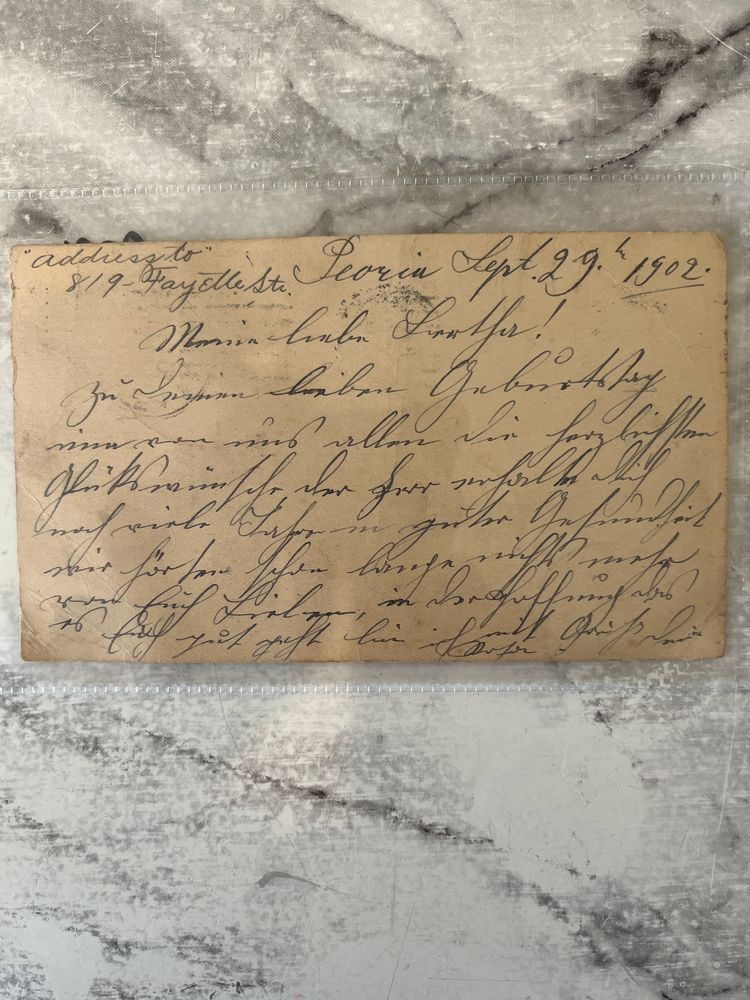 "address to"
819 - Fayette Str. Peoria Sept. 29.th 1902.
Meine liebe Bertha!
Zu Deinem lieben Geburtstag
von uns allen die herzlichsten
Glükswünsche, der Herr erhalte Dich
noch viele Jahre in guter Gesundheit
wir hörten schon lange nichts mehr
von Euch Lieben, in der Hoffnung das
es Euch gut geht bin ich mit Gruß Deine